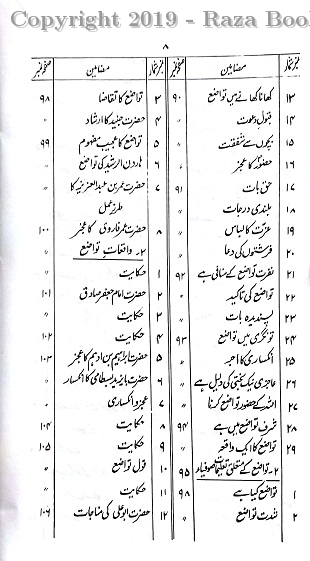 Copyright 2019 - Raza Boo
۸
نمبر شمار مضامین صفحہ نمبر
۱۳ کھانا کھانے میں تواضع ۹۰
۱۴ قبولِ دعوت "
۱۵ بچوں سے شفقت "
۱۶ حضورؐ کا عجز "
۱۷ حق بات ۹۱
۱۸ بلندی درجات "
۱۹ عزت کا لباس "
۲۰ فرشتوں کی دعا "
۲۱ نفرت تواضع کے منافی ہے ۹۲
۲۲ تواضع کی تاکید "
۲۳ پسندیدہ بات "
۲۴ تونگری میں تواضع ۹۳
۲۵ انکساری کا اجر "
۲۶ عاجزی نیک بختی کی دلیل ہے "
۲۷ اللہ کے حضور تواضع کرنا "
۲۸ شرف تواضع میں ہے ۹۴
۲۹ تواضع کا ایک واقعہ "
۲۔ تواضع کے متعلق تعلیمات صوفیاء ۹۵
۱ تواضع کیا ہے ۹۸
۲ تواضع "
نمبر شمار مضامین صفحہ نمبر
۳ تواضع کا تقاضا ۹۸
۴ حضرت جنید کا ارشاد "
۵ تواضع کا عجیب مفہوم ۹۹
۶ ہارون الرشید کی تواضع "
۷ حضرت عمر بن عبدالعزیز کا "
طرزِ عمل
۸ حضرت عمر فاروق کا عجز ۱۰۰
۲۔ واقعات تواضع "
۱ حکایت "
۲ حضرت امام جعفر صادق ۱۰۱
۳ حکایت "
۴ حکایت ۱۰۲
۵ حضرت ابراہیم بن ادہم کا عجز ۱۰۳
۶ حضرت بایزید بسطامی کا انکسار "
۷ عجز و انکساری "
۸ حکایت ۱۰۴
۹ حکایت ۱۰۵
۱۰ قول تواضع "
۱۱ حکایت "
۱۲ حضرت ابو علی کی مناجات ۱۰۶